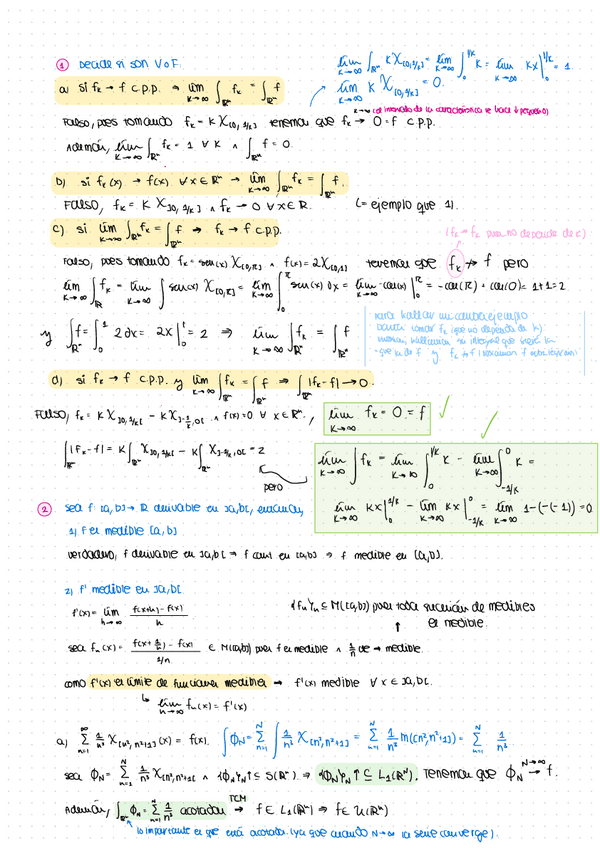 ① Decide si son V o F.
a) si fₖ → f c.p.p. ⇒ lim_{k→∞} ∫_{ℝⁿ} fₖ = ∫_{ℝⁿ} f
lim_{k→∞} ∫_{ℝⁿ} k χ_{[0,1/k]} = lim_{k→∞} ∫₀^{1/k} k = lim_{k→∞} kx |₀^{1/k} = 1.
lim_{k→∞} k χ_{[0,1/k]} = 0.
Falso, pues tomando fₖ = k χ_{[0,1/k]} tenemos que fₖ → 0 = f c.p.p.
Además, lim_{k→∞} ∫_{ℝⁿ} fₖ = 1 ∀ k ∧ ∫_{ℝⁿ} f = 0.
b) si fₖ(x) → f(x) ∀x∈ℝⁿ → lim_{k→∞} ∫_{ℝⁿ} fₖ = ∫_{ℝⁿ} f.
Falso, fₖ = k χ_{]0,1/k]} ∧ fₖ → 0 ∀x∈ℝ. (= ejemplo que 1).
c) si lim_{k→∞} ∫_{ℝⁿ} fₖ = ∫_{ℝⁿ} f ⇒ fₖ → f c.p.p.
(fₖ → fₖ pues no depende de k)
Falso, pues tomando fₖ = sen(x) χ_{[0,π]} ∧ f(x) = 2χ_{[0,1]} tenemos que fₖ ↛ f pero
lim_{k→∞} ∫_{ℝⁿ} fₖ = lim_{k→∞} ∫ sen(x) χ_{[0,π]} = lim_{k→∞} ∫₀^π sen(x) dx = lim_{k→∞} -cos(x) |₀^π = -cos(π) + cos(0) = 1+1 = 2
y ∫_{ℝⁿ} f = ∫₀¹ 2dx = 2x |₀¹ = 2 ⇒ lim_{k→∞} ∫_{ℝⁿ} fₖ = ∫_{ℝⁿ} f
para hallar un contraejemplo
tomar fₖ (que no dependa de k)
d) si fₖ → f c.p.p. y lim_{k→∞} ∫_{ℝⁿ} fₖ = ∫_{ℝⁿ} f ⇒ ∫_{ℝⁿ} |fₖ - f| → 0.
Falso, fₖ = k χ_{]0,1/k[} - k χ_{]-1/k,0[} ∧ f(x) = 0 ∀ x∈ℝⁿ, lim_{k→∞} fₖ = 0 = f ✓
∫_{ℝⁿ} |fₖ - f| = k ∫_{ℝⁿ} χ_{]0,1/k[} - k ∫_{ℝⁿ} χ_{]-1/k,0[} = 2
pero
lim_{k→∞} ∫ fₖ = lim_{k→∞} ∫₀^{1/k} k - lim_{k→∞} ∫_{-1/k}^0 k =
lim_{k→∞} kx |₀^{1/k} - lim_{k→∞} kx |_{-1/k}^0 = lim_{k→∞} 1-(-(-1)) = 0
② sea f: [a,b] → ℝ derivable en ]a,b[,
1) f es medible [a,b]
verdadero, f derivable en ]a,b[ ⇒ f cont en [a,b] ⇒ f medible en [a,b].
2) f' medible en ]a,b[.
f'(x) = lim_{h→∞} (f(x+h) - f(x))/h
{fₙ}ₙ ⊆ M([a,b]) pues toda sucesión de medibles
↑ es medible.
sea fₙ(x) = (f(x+1/n) - f(x))/(1/n) ∈ M([a,b]) pues f es medible ∧ 1/n cte → medible.
como f'(x) es límite de funciones medibles → f'(x) medible ∀ x∈]a,b[.
↳ lim_{n→∞} fₙ(x) = f'(x)
a) Σ_{n=1}^∞ 1/n² χ_{[n²,n²+1]}(x) = f(x). ∫ϕ_N = Σ_{n=1}^N ∫ 1/n² χ_{[n²,n²+1]} = Σ_{n=1}^N 1/n² m([n²,n²+1]) = Σ_{n=1}^N 1/n²
sea ϕ_N = Σ_{n=1}^N 1/n² χ_{[n²,n²+1[} ∧ {ϕ_N}_N ↑ ⊆ S(ℝⁿ). ⇒ {ϕ_N}_N ↑ ⊆ L₁(ℝⁿ). Tenemos que ϕ_N →^{N→∞} f.
Además, ∫_{ℝⁿ} ϕ_N = Σ_{n=1}^N 1/n² acotadas →^{TCM} f ∈ L₁(ℝⁿ) ⇒ f ∈ L(ℝⁿ)
lo importante es que está acotada. (ya que cuando N→∞ la serie converge).